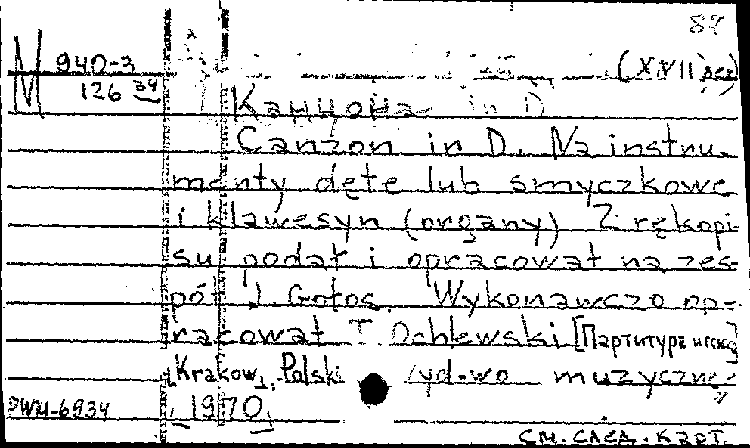 84
М 940-3
126 34
(XVII век)
Канцона in D
Canzon in D. Na instru-
menty dęte lub smyczkowe
i klawesyn (organy) Z rękopi-
su podał i opracował na zes-
pół J. Gołos. Wykonawczo op-
racował T. Ochlewski [Партитура
Kraków, Polskie wyd-wo muzyczne
PWM-6934
1970
См. след. карт.